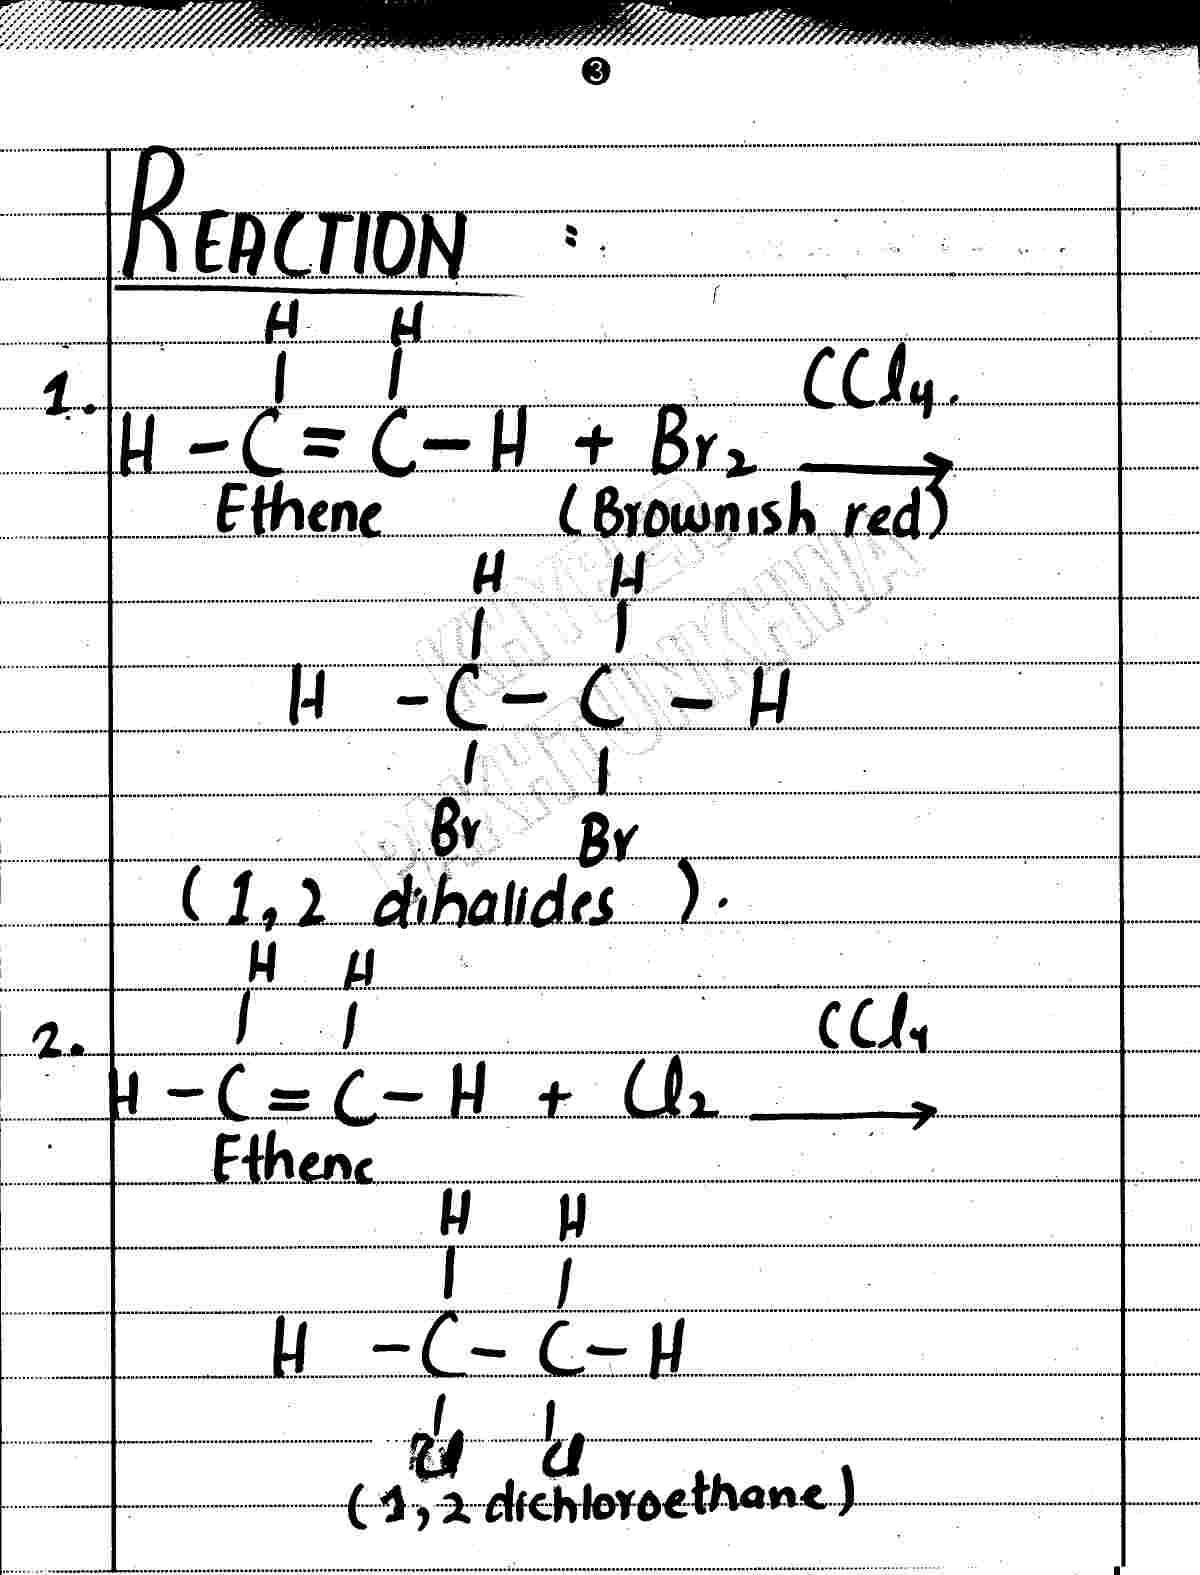 3
REACTION :
H H
| |
1. H - C = C - H + Br2 CCl4. →
Ethene (Brownish red)
H H
| |
H - C - C - H
| |
Br Br
(1,2 dihalides).
H H
| |
2. H - C = C - H + Cl2 CCl4 →
Ethene
H H
| |
H - C - C - H
| |
Cl Cl
(1,2 dichloroethane)
KHYBER
PAKHTUNKHWA